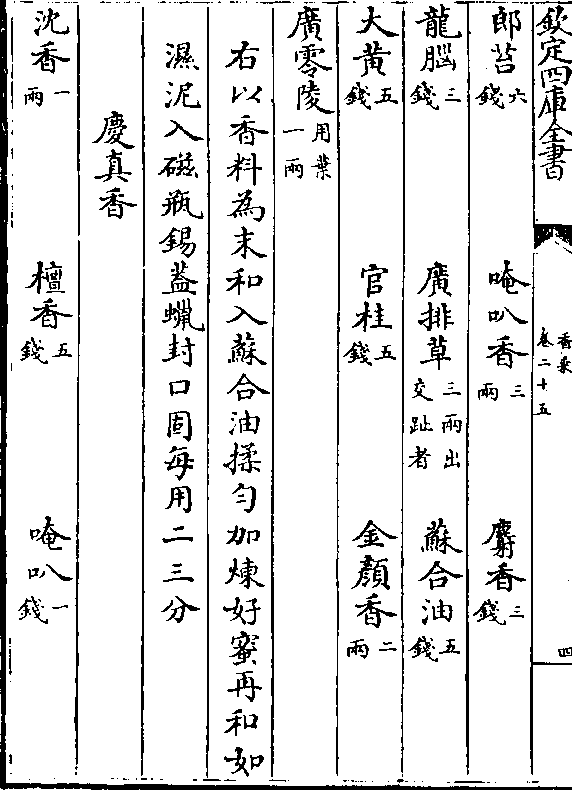 欽定四庫全書
香乘
卷二十五
四
郎苔六錢 唵叭香三兩 麝香三錢
龍腦三錢 廣排草三兩出交趾者 蘇合油五錢
大黃五錢 官桂五錢 金顏香二兩
廣零陵用葉一兩
右以香料為末和入蘇合油揉勻加煉好蜜再和如
濕泥入磁瓶錫葢蠟封口固每用二三分
慶真香
沈香一兩 檀香五錢 唵叭一錢